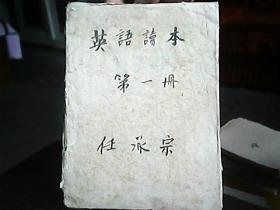 英語讀本
第一冊
任承宗